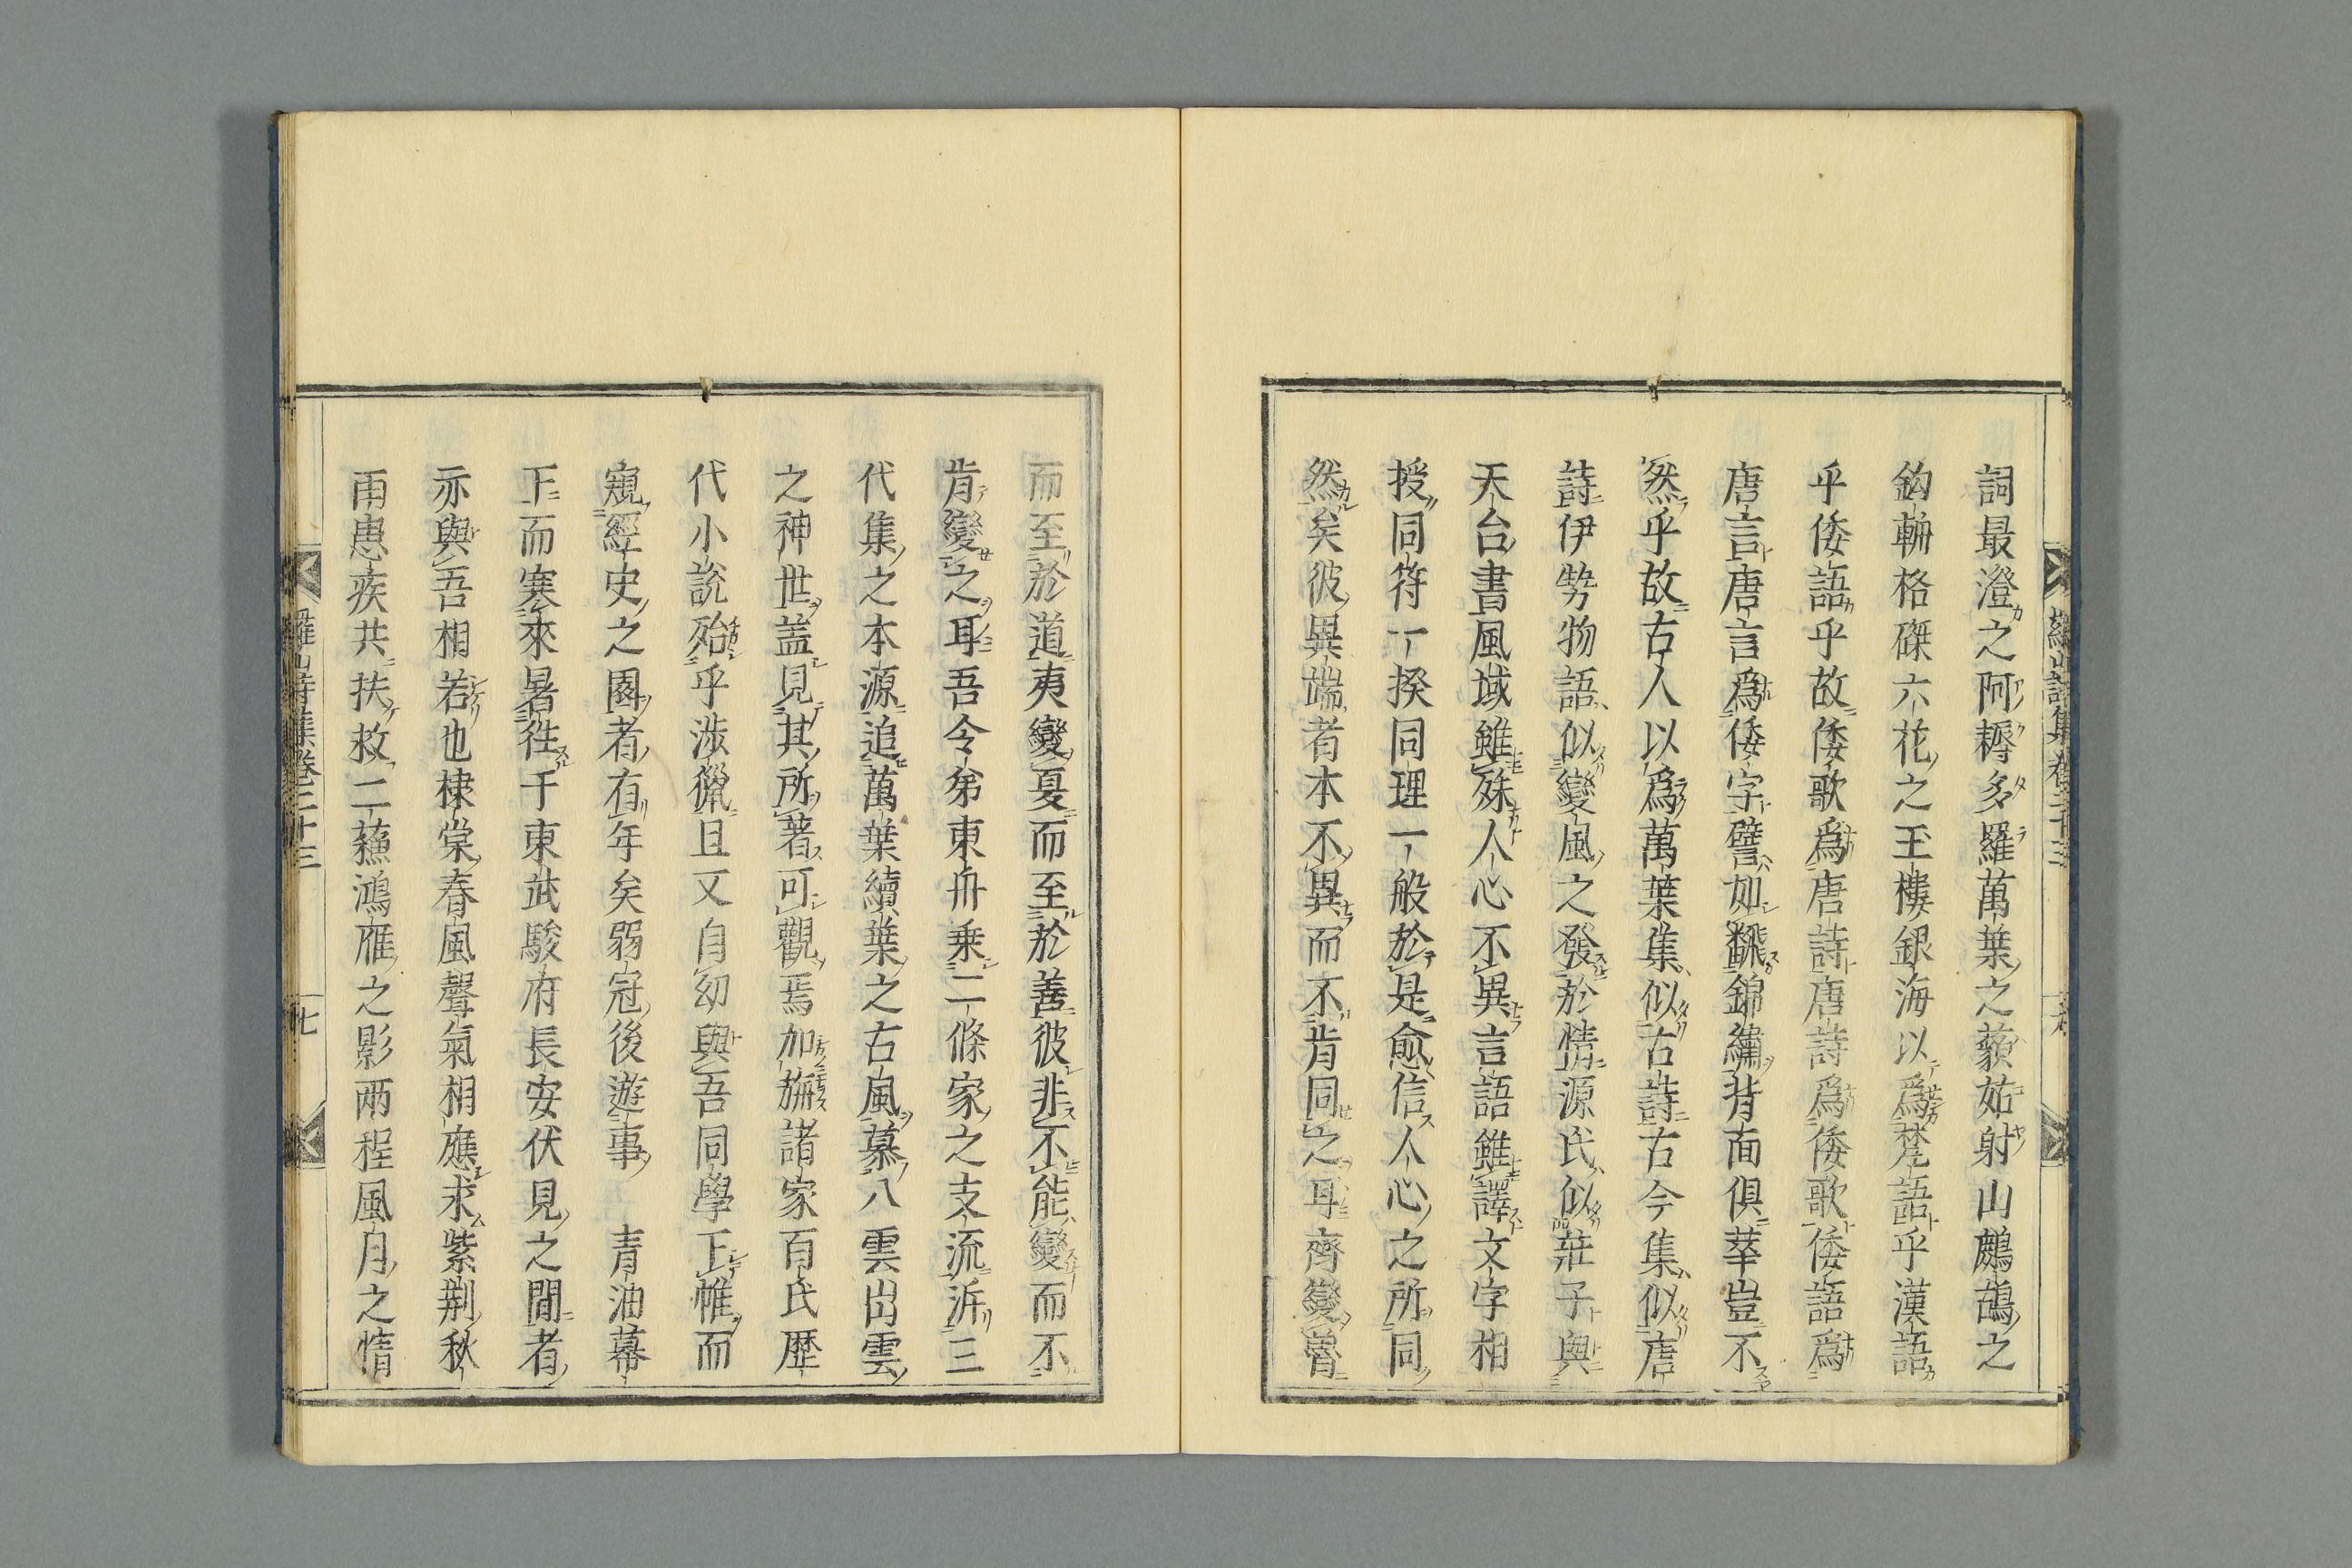 詞最澄之阿耨多羅萬葉之藐姑射山鷓鴣之
鈎輈格磔六花之玉樓銀海以爲梵語乎漢語
乎倭語乎故倭歌爲唐詩唐詩爲倭歌倭語爲
唐言唐言爲倭字譬如飜錦繡背面俱華豈不
然乎故古人以爲萬葉集似古詩古今集似唐
詩伊勢物語似變風之發於情源氏似莊子與
天台書風域雖殊人心不異言語雖譯文字相
授同符一揆同理一般於是愈信人心之所同
然矣彼異端者本不異而不肯同之耳齊變魯
而至於道夷變夏而至於善彼非不能變而不
肯變之耳吾令弟東舟乗二條家之支流泝三
代集之本源追萬葉續葉之古風慕八雲出雲
之神世蓋見其所著可觀焉加旃諸家百氏歷
代小說殆乎涉獵且又自幼與吾同學下帷而
窺經史之園者有年矣弱冠後遊事　青油幕
下而寒來暑往于東武駿府長安伏見之間者
亦與吾相若也棣棠春風聲氣相應求紫荆秋
雨患疾共扶救二蘓鴻雁之影兩程風月之情
羅山詩集卷三十三
七